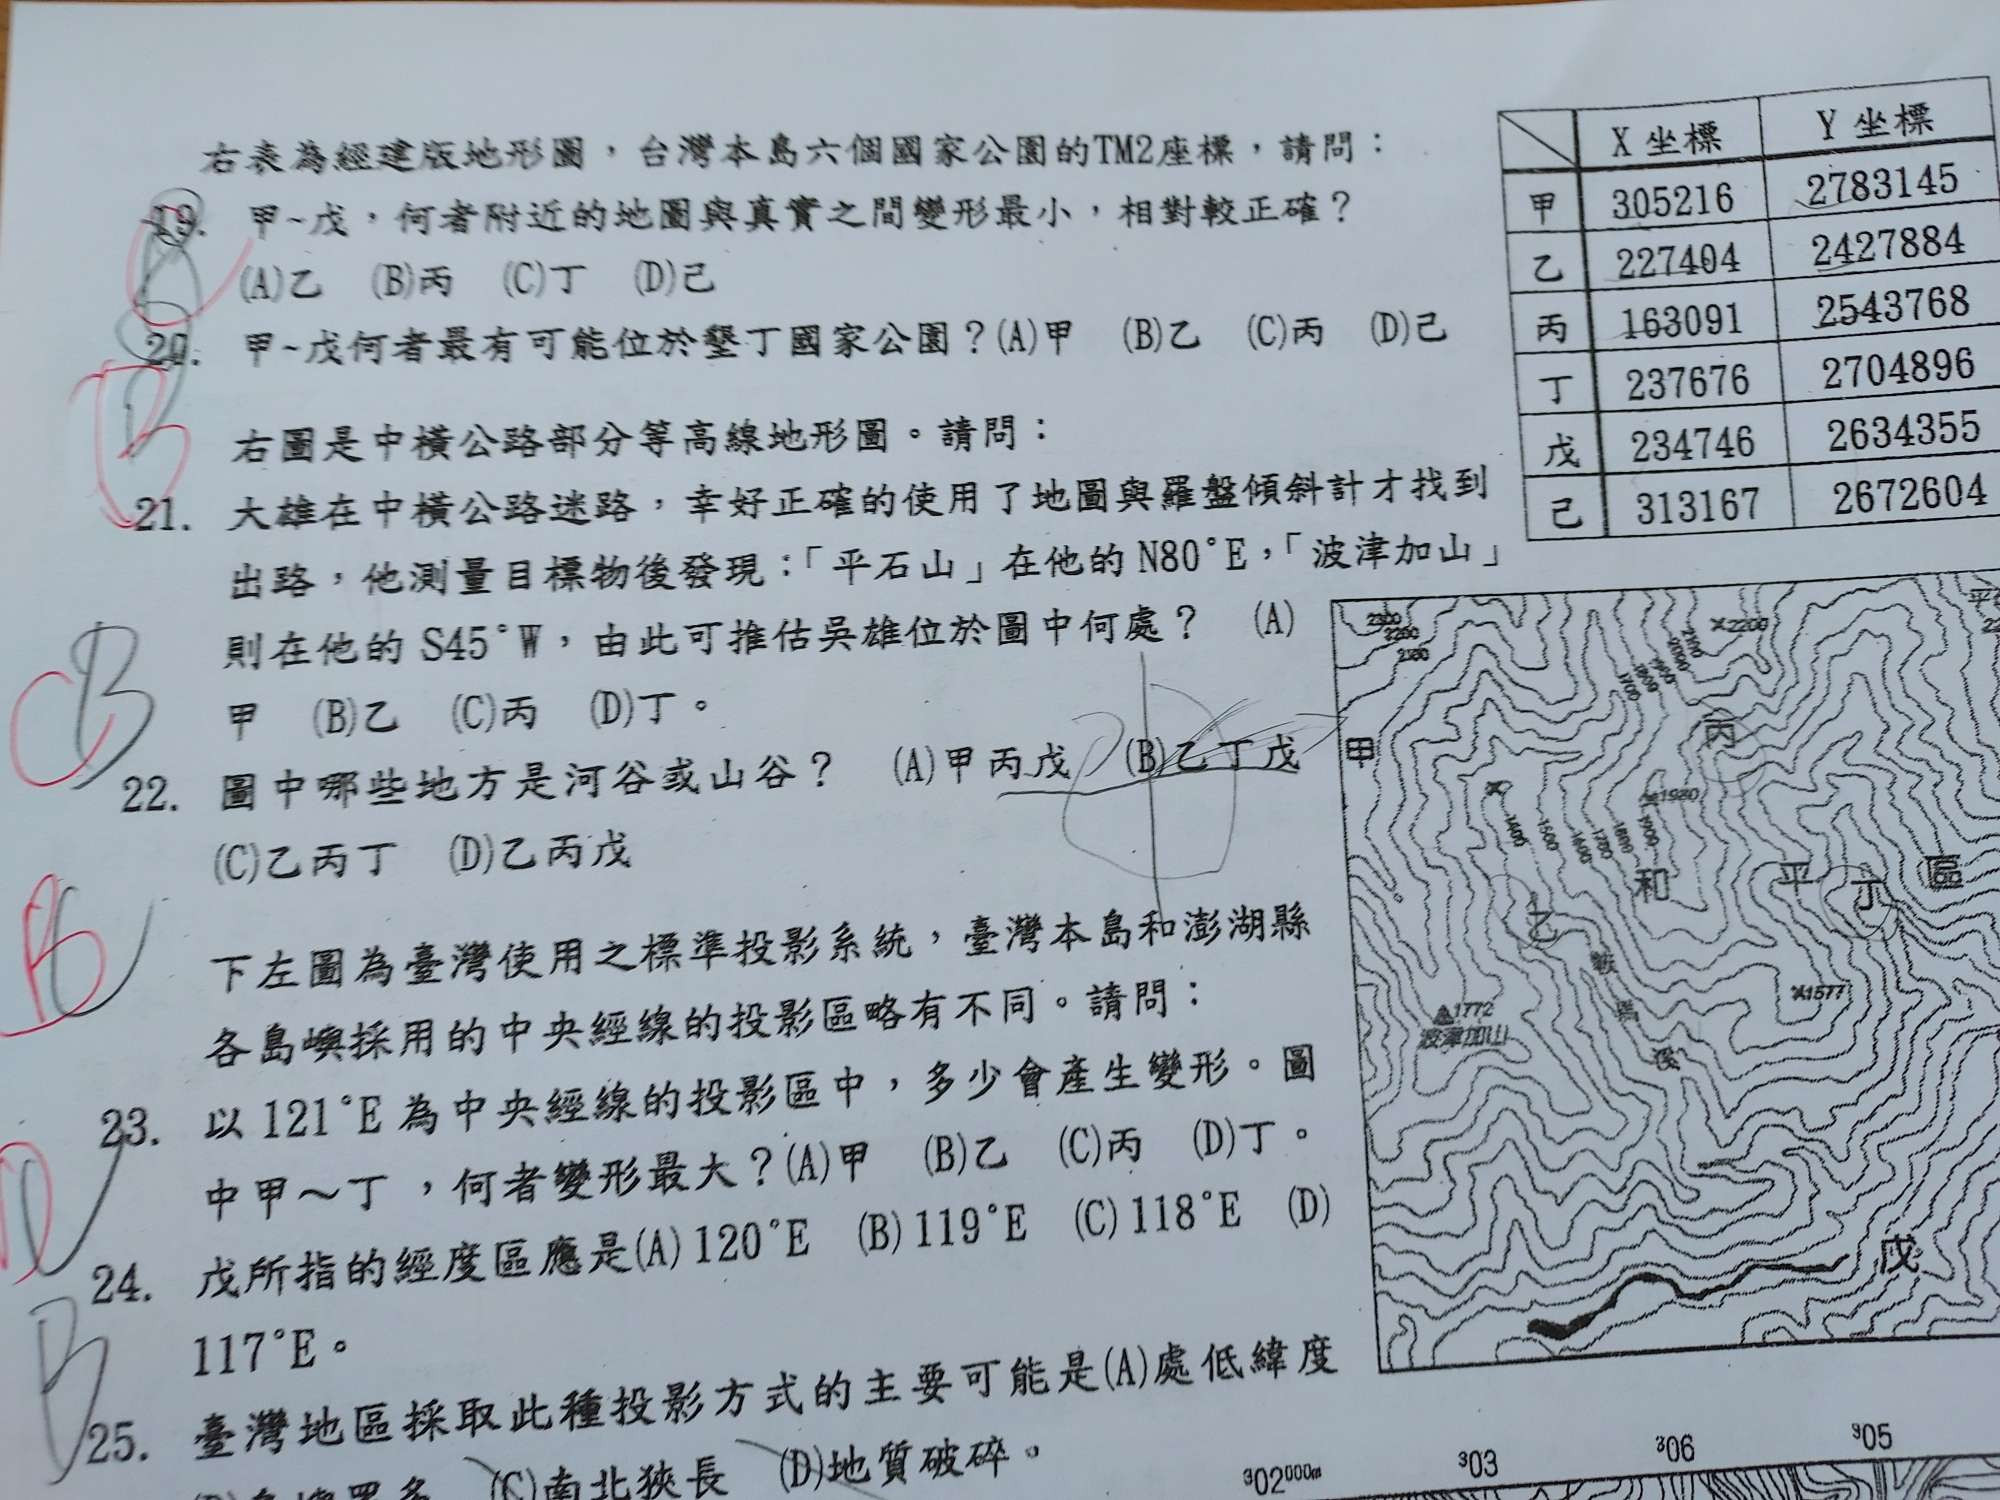 右表為經建版地形圖，台灣本島六個國家公園的TM2座標，請問：
19. 甲~戊，何者附近的地圖與真實之間變形最小，相對較正確？
(A)乙 (B)丙 (C)丁 (D)己
20. 甲~戊何者最有可能位於墾丁國家公園？(A)甲 (B)乙 (C)丙 (D)己
X 坐標 Y 坐標
甲 305216 2783145
乙 227404 2427884
丙 163091 2543768
丁 237676 2704896
戊 234746 2634355
己 313167 2672604
右圖是中橫公路部分等高線地形圖。請問：
21. 大雄在中橫公路迷路，幸好正確的使用了地圖與羅盤傾斜計才找到
出路，他測量目標物後發現：「平石山」在他的 N80°E，「波津加山」
則在他的 S45°W，由此可推估吳雄位於圖中何處？ (A)
甲 (B)乙 (C)丙 (D)丁。
22. 圖中哪些地方是河谷或山谷？ (A)甲丙戊 (B)乙丁戊
(C)乙丙丁 (D)乙丙戊
下左圖為臺灣使用之標準投影系統，臺灣本島和澎湖縣
各島嶼採用的中央經線的投影區略有不同。請問：
23. 以 121°E 為中央經線的投影區中，多少會產生變形。圖
中甲～丁，何者變形最大？(A)甲 (B)乙 (C)丙 (D)丁。
24. 戊所指的經度區應是(A) 120°E (B) 119°E (C) 118°E (D)
117°E。
25. 臺灣地區採取此種投影方式的主要可能是(A)處低緯度
(C)南北狹長 (D)地質破碎。
2300
2200
×2200
2100
2000
1900
1800
1700
甲
丙
×1980
1400
1500
1600
1700
1800
1900
和 平 丁 區
乙
溪
×1577
▲1772
波津加山
戊
³02⁰⁰⁰ᵐ ³03 ³06 ³05
B
B
C
B
B